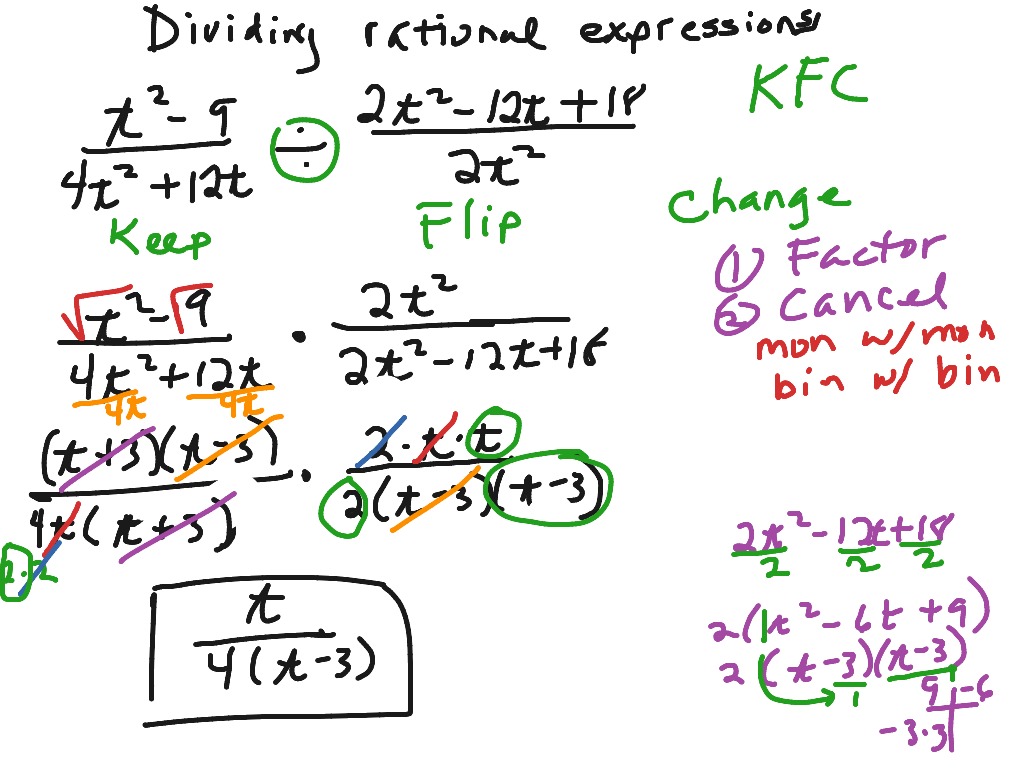 Dividing rational expressions
KFC
t² - 9 / 4t² + 12t ÷ 2t² - 12t + 18 / 2t²
Keep Flip Change
① Factor
② Cancel
mon w/ mon
bin w/ bin
√t² - √9 / 4t² + 12t · 2t² / 2t² - 12t + 18
4t 4t
(t+3)(t-3) / 4t(t+3) · 2·t·t / 2(t-3)(t-3)
2·2
t / 4(t-3)
2t² - 12t + 18
2 2 2
2(1t² - 6t + 9)
2(t-3)(t-3)
1 1
9 -6
-3·3